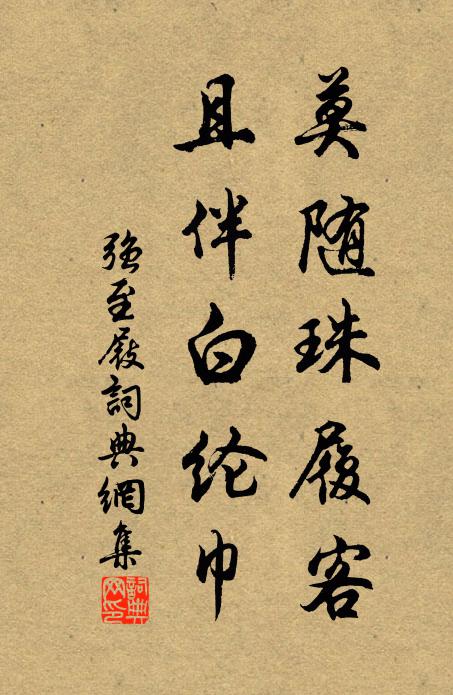 莫随珠履客
且伴白纶巾
强至屐詞典網集
詞典网印